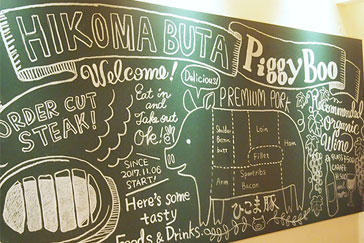 HIKOMA BUTA
Piggy Boo
Welcome!
Delicious!
ORDER CUT
STEAK!
Eat in
and
Take out
Ok!
PREMIUM PORK
Recommended
organic
Wine
Shoulder
Boston
butt
Loin
Ham
Fillet
Arm
Spareribs
Bacon
SINCE
2017.11.06
START!
Here's some
tasty
Foods & Drinks.
ひこま豚